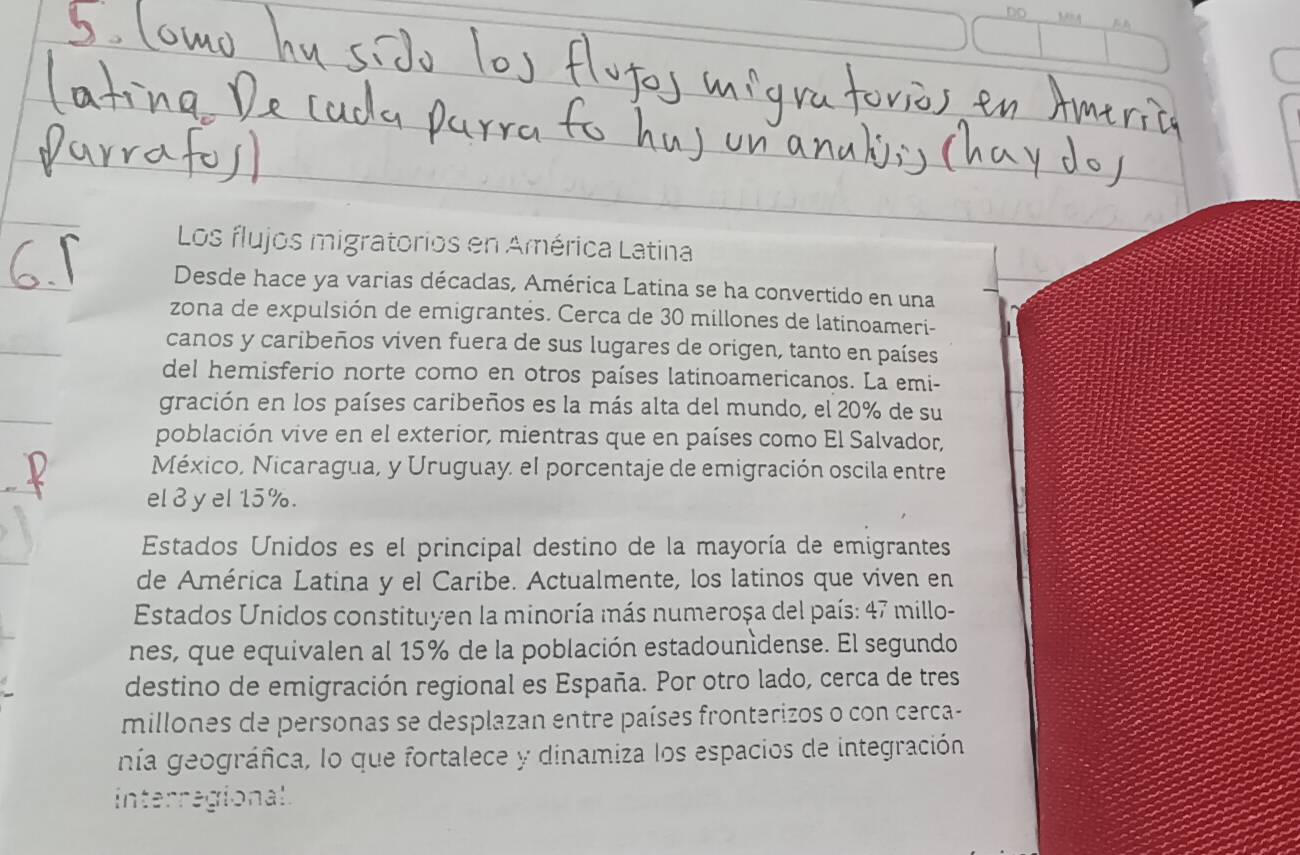 DD MM AA
5. Como ha sido los flujos migratorios en America
latina. De cada parrafo has un analisis (hay dos
parrafos)
6.
Los flujos migratorios en América Latina
Desde hace ya varias décadas, América Latina se ha convertido en una
zona de expulsión de emigrantes. Cerca de 30 millones de latinoameri-
canos y caribeños viven fuera de sus lugares de origen, tanto en países
del hemisferio norte como en otros países latinoamericanos. La emi-
gración en los países caribeños es la más alta del mundo, el 20% de su
población vive en el exterior, mientras que en países como El Salvador,
México, Nicaragua, y Uruguay. el porcentaje de emigración oscila entre
el 8 y el 15%.
Estados Unidos es el principal destino de la mayoría de emigrantes
de América Latina y el Caribe. Actualmente, los latinos que viven en
Estados Unidos constituyen la minoría más numerosa del país: 47 millo-
nes, que equivalen al 15% de la población estadounidense. El segundo
destino de emigración regional es España. Por otro lado, cerca de tres
millones de personas se desplazan entre países fronterizos o con cerca-
nía geográfica, lo que fortalece y dinamiza los espacios de integración
interregional.